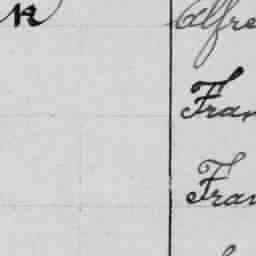 k Alfre
Fran
Fran